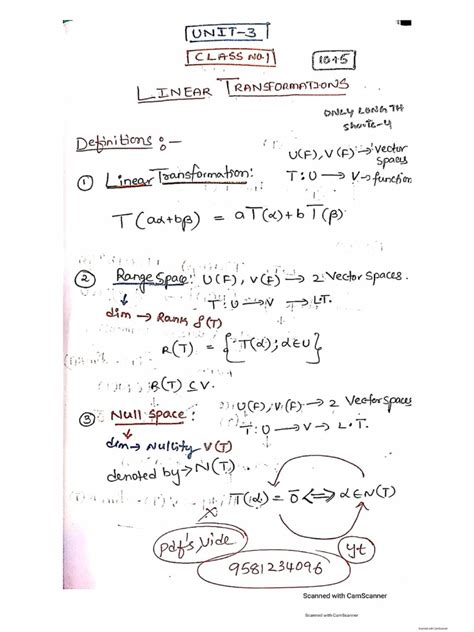 UNIT-3
CLASS NO.1
LINEAR TRANSFORMATIONS
ONLY LENGTH
Definitions :-
U(F), V(F) → vector spaces
① Linear Transformation:
T : U → V → function
T(aα+bβ) = aT(α)+bT(β)
② Range Space: U(F), V(F) → 2 Vector Spaces.
↓
T : U → V → L.T.
dim → Rank ρ(T)
R(T) = {T(α); α∈U}
R(T) ⊆ V.
③ Null space : U(F), V(F) → 2 Vector Spaces
↓
T : U → V → L.T.
dim → Nullity ν(T)
denoted by → N(T)
T(α) = 0̄ ⇔ α∈N(T)
Pdf's vide
yt
9581234096
Scanned with CamScanner
Scanned with CamScanner